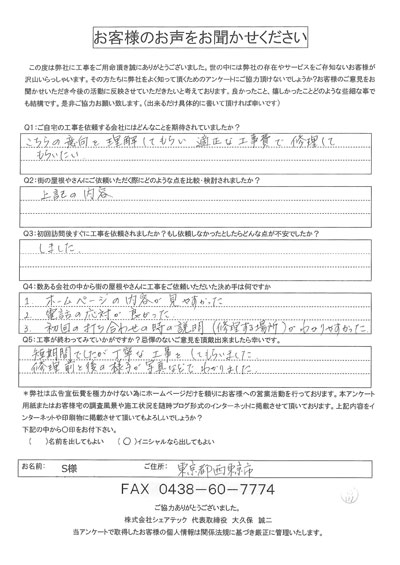 お客様のお声をお聞かせください
この度は弊社に工事をご用命頂き誠にありがとうございました。世の中には弊社の存在やサービスをご存知ないお客様が
沢山いらっしゃいます。その方たちに弊社をよく知って頂くためのアンケートにご協力頂けないでしょうか?お客様のご意見をお
聞かせいただき今後の活動に反映させていただきたいと考えております。良かったこと、嬉しかったことどのような些細な事で
も結構です。是非ご協力お願い致します。(出来るだけ具体的に書いて頂ければ幸いです)
Q1:ご自宅の工事を依頼する会社にはどんなことを期待されていましたか?
こちらの意向を理解してもらい 適正な工事費で修理して
もらいたい
Q2:街の屋根やさんにご依頼いただく際にどのような点を比較・検討されましたか?
上記の内容
Q3:初回訪問後すぐに工事を依頼されましたか?もし依頼しなかったとしたらどんな点が不安でしたか?
しました
Q4:数ある会社の中から街の屋根やさんに工事をご依頼いただいた決め手は何ですか
1. ホームページの内容が見やすかった
2. 電話の応対が良かった
3. 初回の打ち合わせの時の説明(修理する場所)がわかりやすかった
Q5:工事が終わってみていかがですか?忌憚のないご意見を頂戴出来ましたら幸いです。
短期間でしたが丁寧な工事をしてもらいました
修理前と後の様子が写真などでわかりました
＊弊社は広告宣伝費を極力かけない為にホームページだけを頼りにお客様への営業活動を行っております。本アンケート
用紙またはお客様宅の調査風景や施工状況を随時ブログ形式のインターネットに掲載させて頂いております。上記内容をイ
ンターネットや印刷物に掲載させて頂いてもよろしいでしょうか?
下記の中から○印をお付け下さい。
( )名前を出してもよい (○)イニシャルなら出してもよい
お名前: S様 ご住所: 東京都西東京市
FAX 0438-60-7774
ご協力ありがとうございました。
株式会社シェアテック 代表取締役 大久保 誠二
当アンケートで取得したお客様の個人情報は関係法規に基づき厳正に管理いたします。